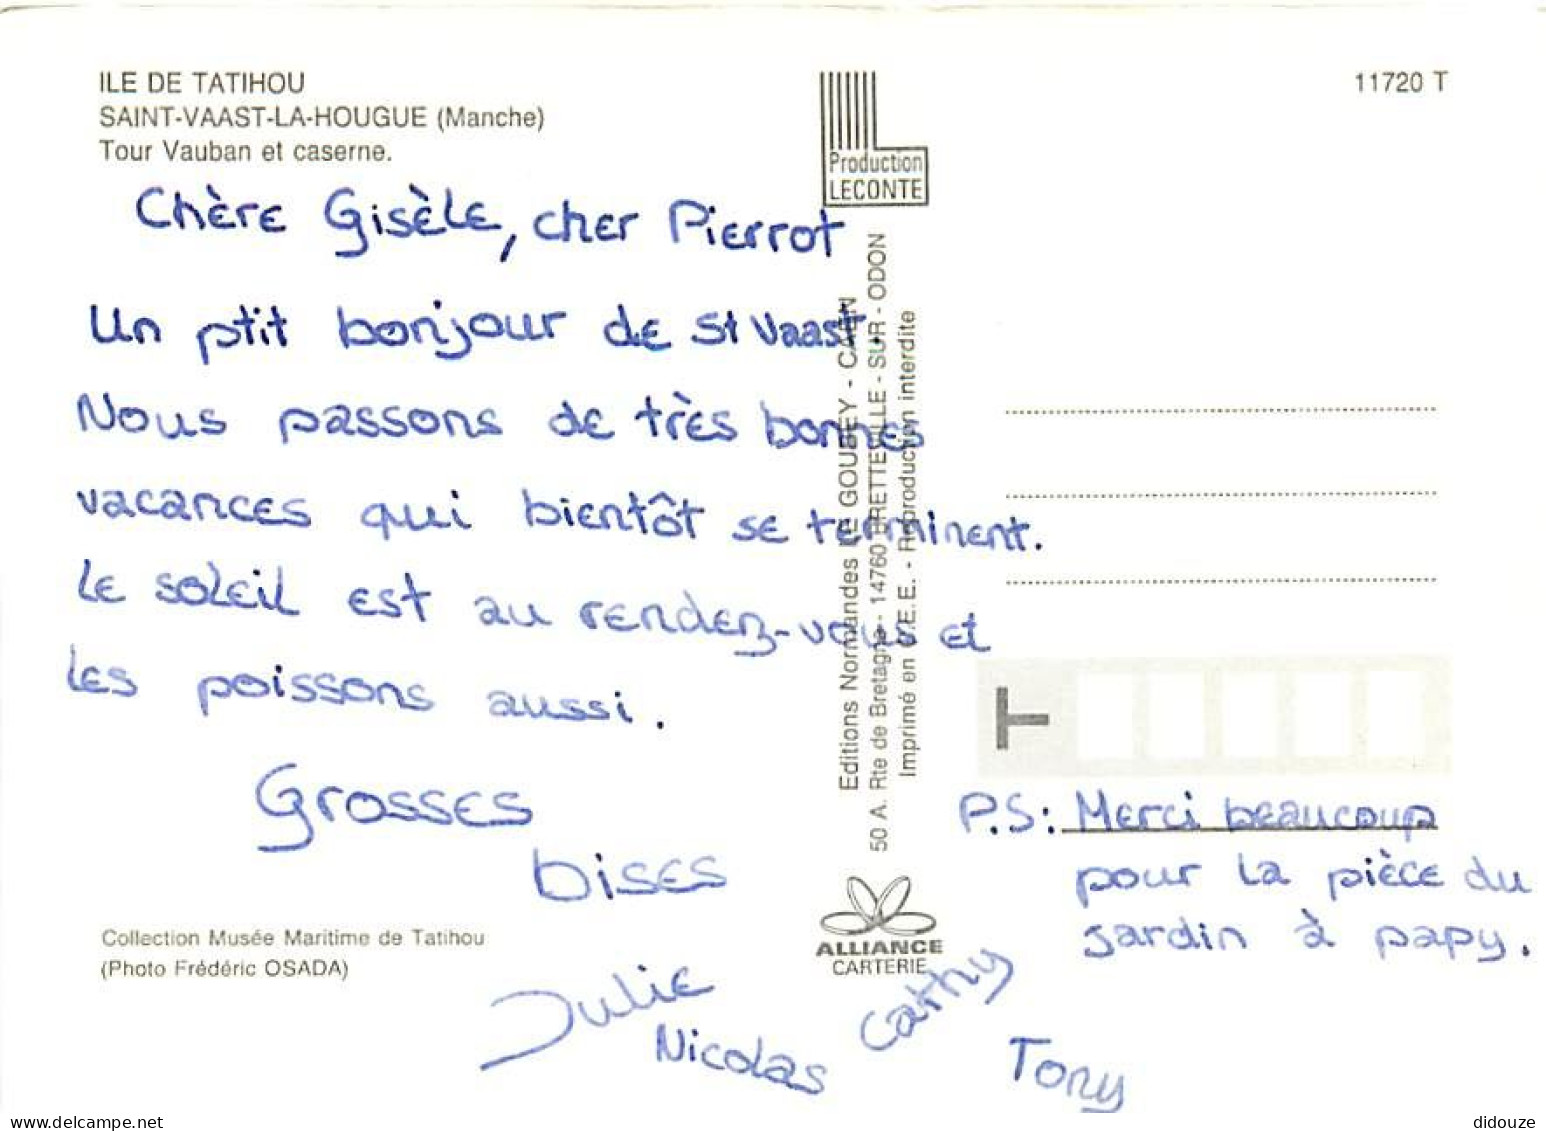 ILE DE TATIHOU
SAINT-VAAST-LA-HOUGUE (Manche)
Tour Vauban et caserne.
11720 T
Production
LECONTE
Chère Gisèle, cher Pierrot
Un ptit bonjour de St Vaast.
Nous passons de très bonnes
vacances qui bientôt se terminent.
Le soleil est au rendez-vous et
les poissons aussi.
Grosses
bises
Julie
Nicolas
Cathy
Tony
P.S: Merci beaucoup
pour la pièce du
jardin à papy.
Editions Normandes LE GOUBEY - CAEN
50 A. Rte de Bretagne - 14760 BRETTEVILLE - SUR - ODON
Imprimé en C.E.E. - Reproduction interdite
T
ALLIANCE
CARTERIE
Collection Musée Maritime de Tatihou
(Photo Frédéric OSADA)
www.delcampe.net
didouze